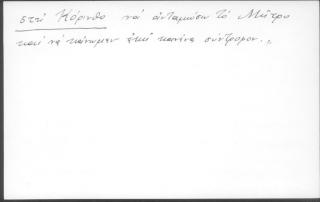 στὴ Κόρινθο νὰ ἀνταμώσω τὸ Μῆτρο
καὶ νὰ κάνωμεν ἐκεῖ κανένα σύντροφον.,